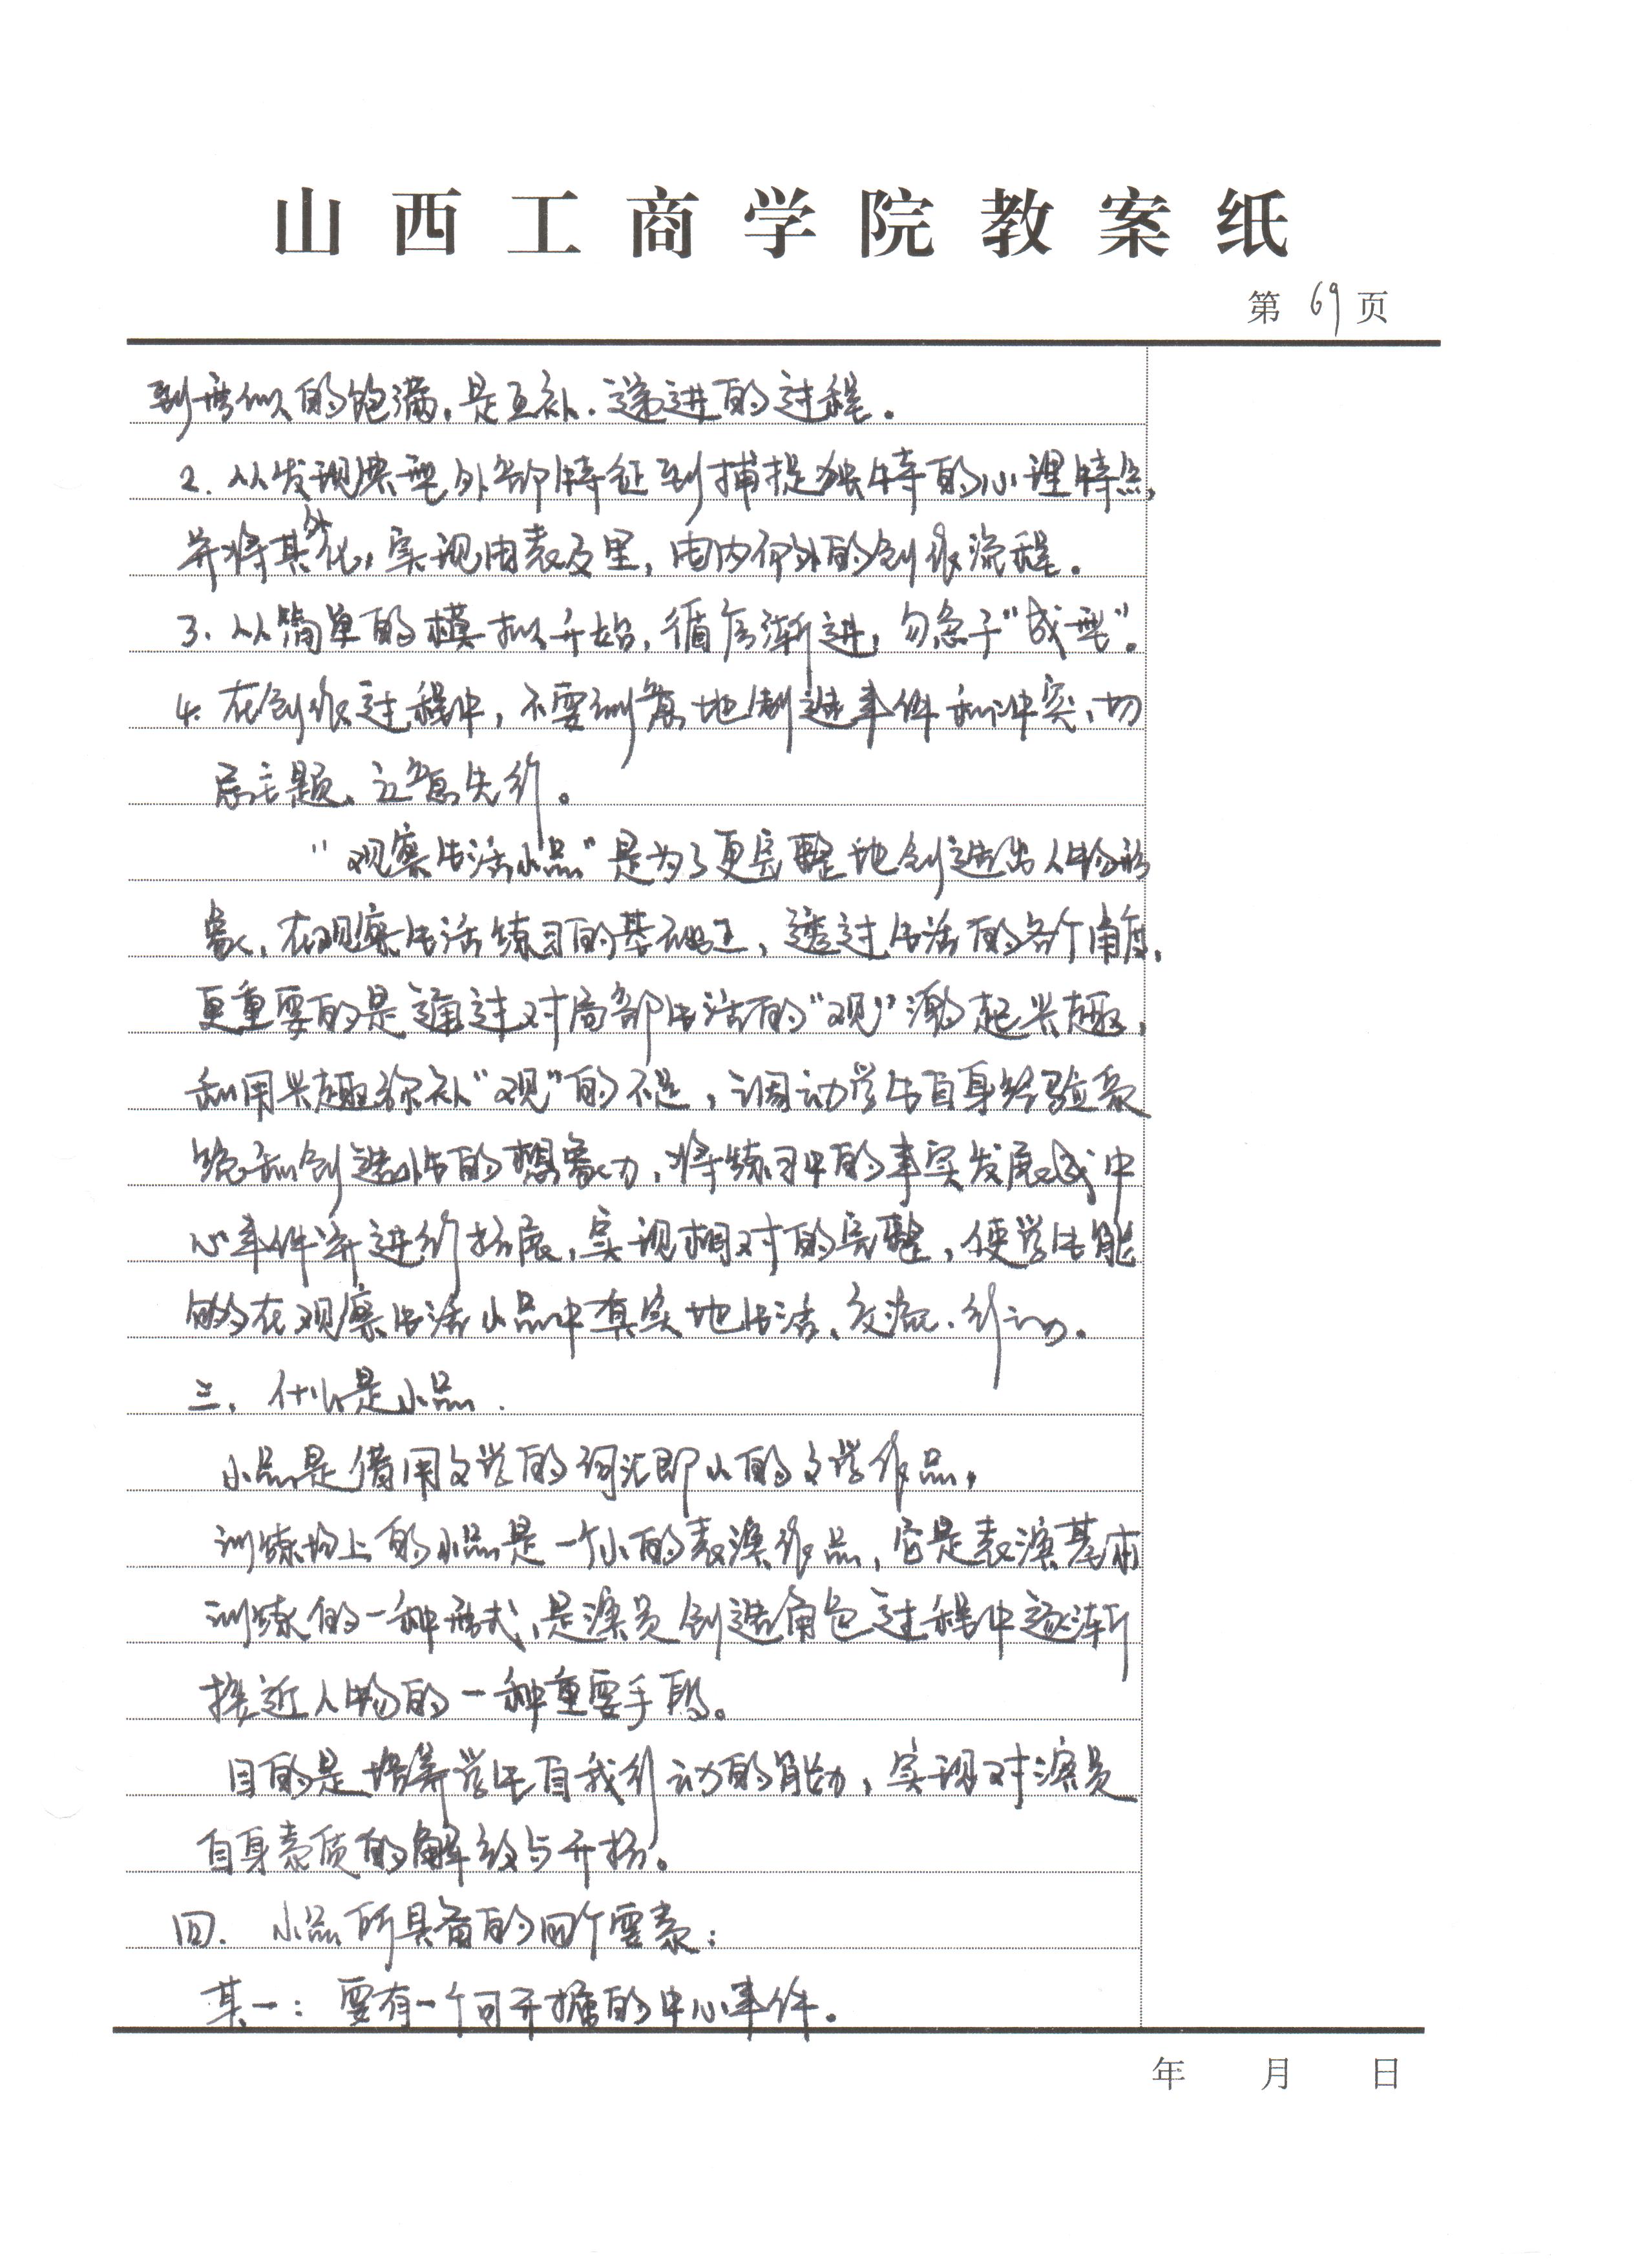 山西工商学院教案纸
第69页
到形似的饱满,是互补、递进的过程。
2.从发现典型外部特征到捕捉独特的心理特点,
并将其外化,实现由表及里,由内而外的创作流程。
3.从简单的模拟开始,循序渐进,勿急于"成型"。
4.在创作过程中,不要刻意地制造事件和冲突,切
忌主题、立意先行。
"观察生活小品"是为了更完整地创造出人物形
象,在观察生活练习的基础上,透过生活的各个角度,
更重要的是通过对局部生活的"观"激起兴趣,
利用兴趣弥补"观"的不足,调动学生自身经验积
和创造性的想象力,将练习中的事实发展成中
心事件并进行拓展,实现相对的完整,使学生能
够在观察生活小品中真实地生活、交流、行动。
三、什么是小品.
小品是借用文学的词汇即小的文学作品,
训练场上的小品是一个小的表演作品,它是表演基本
训练的一种形式,是演员创造角色过程中逐渐
接近人物的一种重要手段。
目的是培养学生自我行动的能力,实现对演员
自身素质的解放与开拓。
四.小品所具备的四个要素:
其一:要有一个可开掘的中心事件。
年 月 日